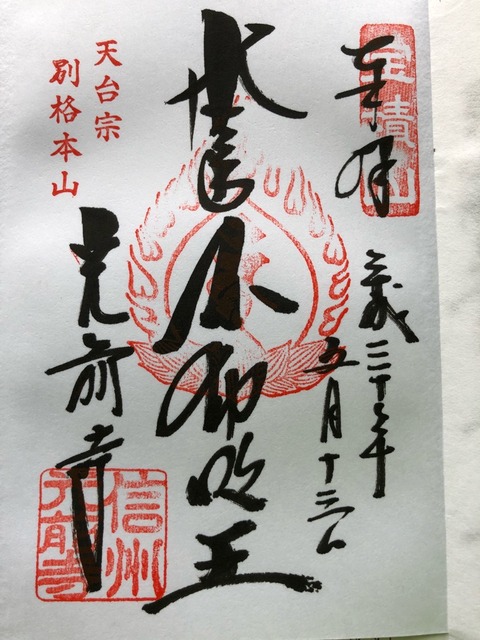 寳積山
奉拝
平成三十年
五月十三日
不動明王
天台宗
別格本山
光前寺
信州
光前寺